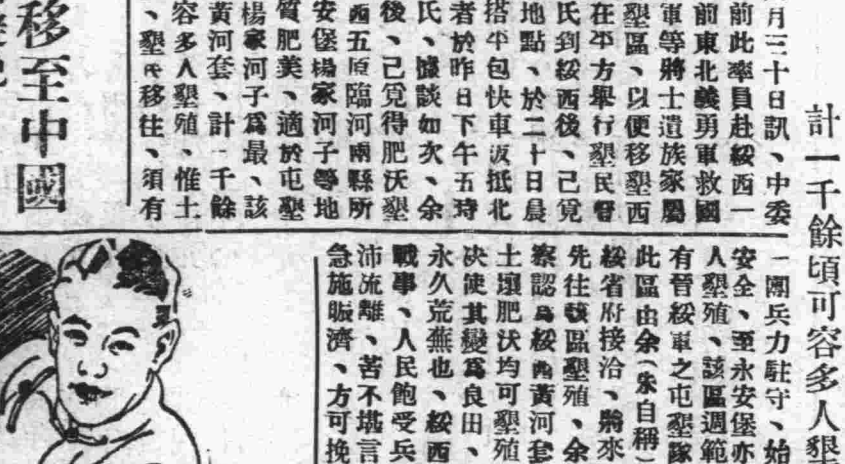 計一千餘頃可容多人墾
月三十日訊、中委
前此率員赴綏西一
前東北義勇軍救國
軍等將士遺族家屬
墾區、以便移墾西
在平方舉行墾民登
氏到綏西後、己覓
地點、於二十日晨
搭平包快車返抵北
者於昨日下午五時
氏、據談如次、余
後、己覓得肥沃墾
西五原臨河兩縣所
安堡楊家河子等地
質肥美、適於屯墾
楊家河子爲最、該
黃河套、計一千餘
容多人墾殖、惟土
、墾民移往、須有
一團兵力駐守、始
安全、至永安堡亦
人墾殖、該區週範
有晉綏軍之屯墾隊
此區由余(朱自稱)
綏省府接洽、將來
先往該區墾殖、余
察認爲綏西黃河套
土壤肥沃均可墾殖
决使其變爲良田、
永久荒蕪也、綏西
戰事、人民飽受兵
沛流離、苦不堪言
急施賑濟、方可挽
移至中國